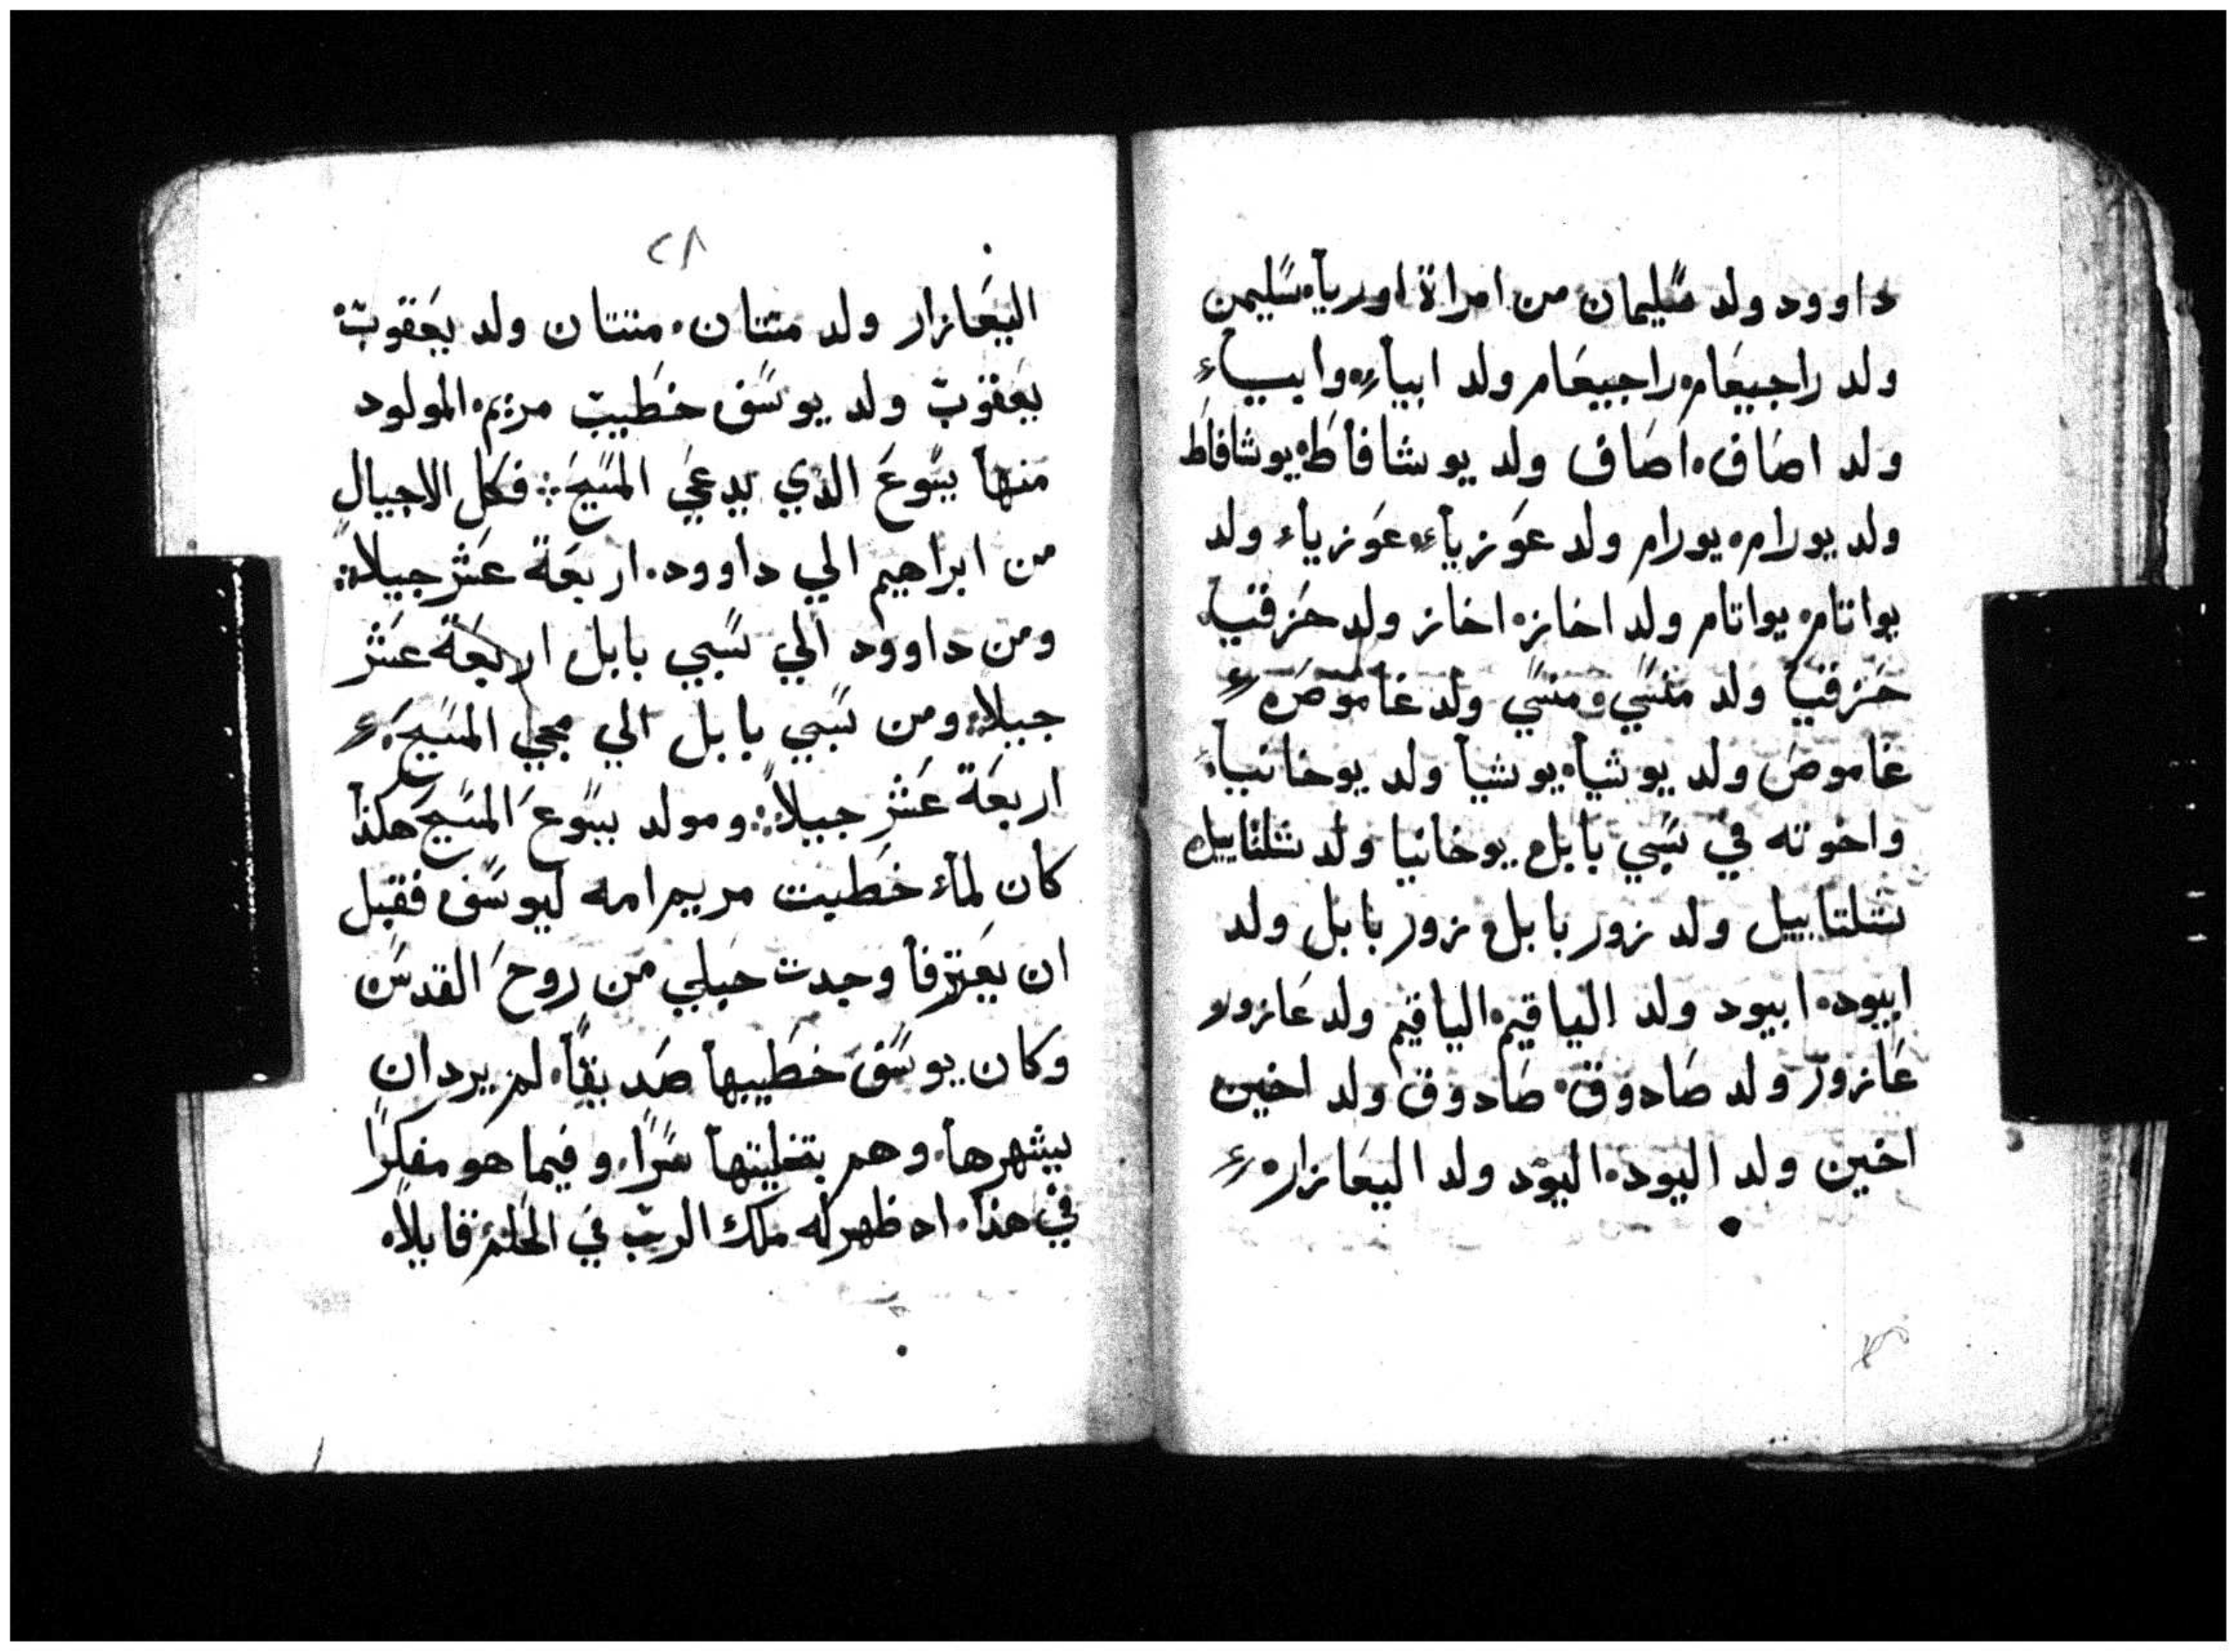 داوود ولد سليمان من امراة اوريا. سليمن
ولد راجبيعام. راجبيعام ولد ابياء. وابيــاء
ولد اصاف. اصاف ولد يوشافاط. يوشافاط
ولد يورام. يورام ولد عوزياء. عوزياء ولد
يواتام. يواتام ولد اخاز. اخاز ولد حزقيا.
حزقيا ولد منسي. ومنسي ولد غاموص.
غاموص ولد يوشيا. يوشيا ولد يوخانيا.
واخوته في سبي بابل. يوخانيا ولد شلتاييل
شلتاييل ولد زوربابل. زوربابل ولد
ابيود. ابيود ولد الياقيم. الياقيم ولد عازور
عازور ولد صادوق. صادوق ولد اخين
اخين ولد اليود. اليود ولد اليعازار.
٢٨
اليعازار ولد متتان. متتان ولد يعقوب.
يعقوب ولد يوسف خطيب مريم. المولود
منها يسوع الذي يدعي المسيح. فكل الاجيال
من ابراهيم الي داوود. اربعة عشر جيلا.
ومن داوود الي سبي بابل اربعة عشر
جيلا. ومن سبي بابل الي مجي المسيح.
اربعة عشر جيلا. ومولد يسوع المسيح هكذا
كان لماء خطبت مريم امه ليوسف فقبل
ان يعترفا وجدت حبلي من روح القدس
وكان يوسف خطيبها صديقا. لم يرد ان
يشهرها. وهم بتخليتها سرا. وفيما هو مفكرا
في هذا. اد ظهر له ملك الرب في الحلم قايلا.